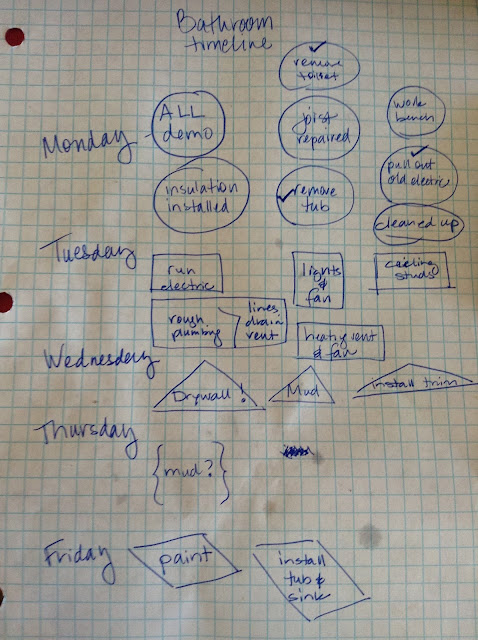 Bathroom
timeline
remove
toilet
Monday
ALL
demo
joist
repaired
work
bench
insulation
installed
remove
tub
pull out
old electric
cleaned up
Tuesday
run
electric
lights
&
fan
ceiling
studs
rough
plumbing
lines
drain
vent
heating vent
& fan
Wednesday
Drywall!
Mud
install trim
Thursday
{mud?}
Friday
paint
install
tub &
sink